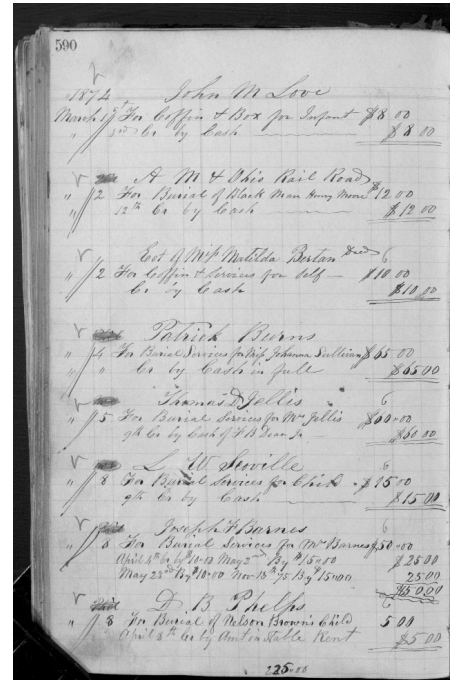 590
1874 John M Love
March 1st For Coffin & Box for Infant $8 00
" 3rd Cr by Cash $8 00
A M & Ohio Rail Road
" 2 For Burial of Black Man Henry Moore $12 00
" 12th Cr by Cash $12 00
Est of Miss Matilda Bertan Decd
" 2 For Coffin & Services for Self $10.00
Cr by Cash $10.00
Patrick Burns
" 4 For Burial Services for Miss Johanna Sullivan $65 00
" " Cr by Cash in full $65 00
Thomas D Jellis
" 5 For Burial Services for Mrs Jellis $60.00
9th Cr by Cash of F B Dean Jr $60 00
L W Scoville
" 8 For Burial Services for Child $15 00
9th Cr by Cash $15 00
Joseph F Barnes
" 8 For Burial Services for Mrs Barnes $50.00
April 4th Cr by $10.00 May 2nd By $15.00 $25 00
May 23rd By $10.00 Nov 13th 75 By $15.00 25 00
$50.00
D. B Phelps
" 8 For Burial of Nelson Brown's Child 5 00
April 8th Cr by Amt on Stable Rent $5 00
225.00